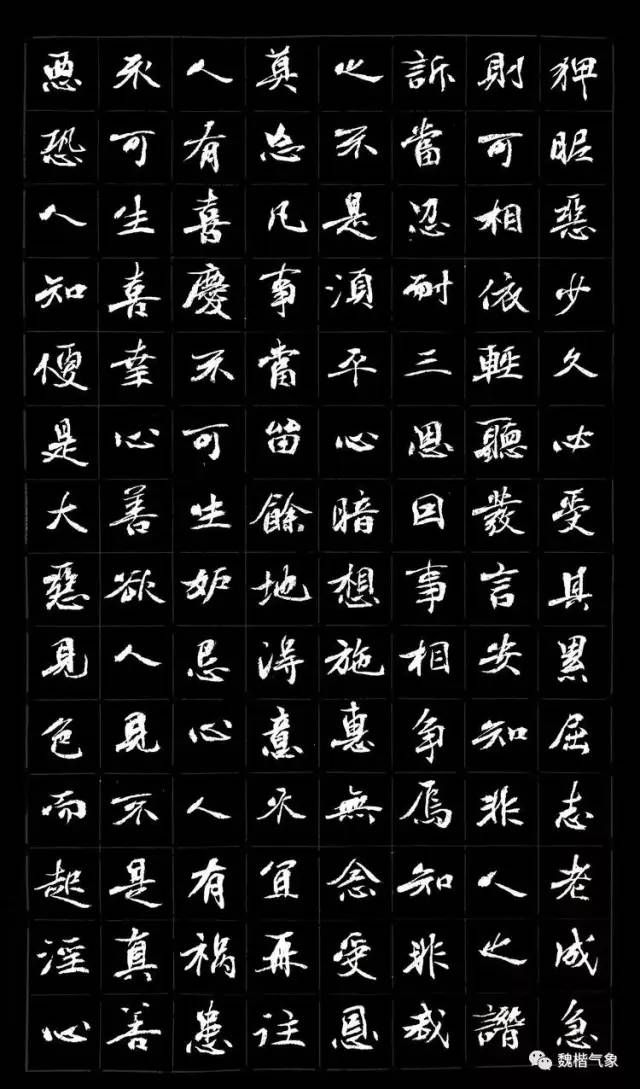 狎昵惡少久必受其累屈志老成急
則可相依輕聽發言安知非人之譖
訴當忍耐三思因事相争焉知非我
之不是須平心暗想施惠無念受恩
莫忘凡事當留餘地得意不宜再往
人有喜慶不可生妒忌心人有禍患
不可生喜幸心善欲人見不是真善
惡恐人知便是大惡見色而起淫心
魏楷气象